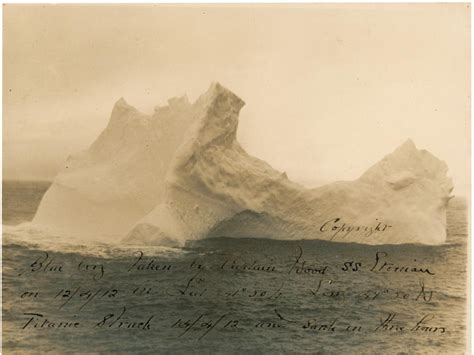 Copyright
Blue berg Taken by Captain Wood SS Etonian
on 12/4/12 in Lat 50 W 50 N
Titanic Struck 14/4/12 and sank in three hours